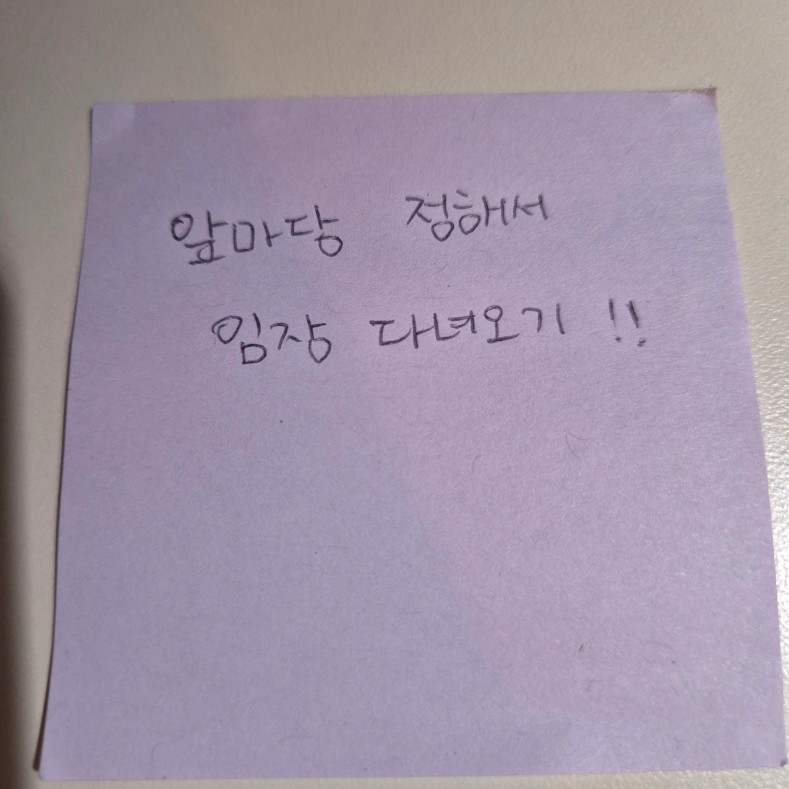 앞마당 정해서
임장 다녀오기 !!